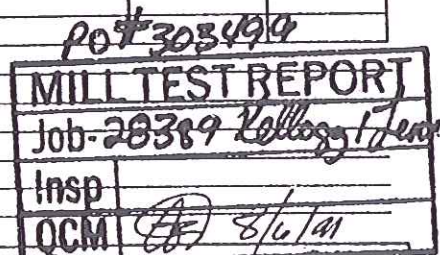 PO# 303499
MILL TEST REPORT
Job- 28389 Kellogg
Insp
QCM 8/6/91